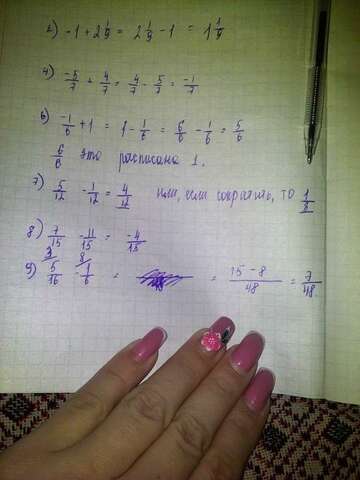 2) -1 + 2 1/9 = 2 1/9 - 1 = 1 1/9
4) -5/7 + 4/7 = 4/7 - 5/7 = -1/7
6) -1/6 + 1 = 1 - 1/6 = 6/6 - 1/6 = 5/6
6/6 это расписана 1.
7) 5/12 - 1/12 = 4/12 или, если сократить, то 1/3
8) 7/15 - 11/15 = -4/15
9) 3 5/16 - 8 1/6 = = 15-8/48 = 7/48